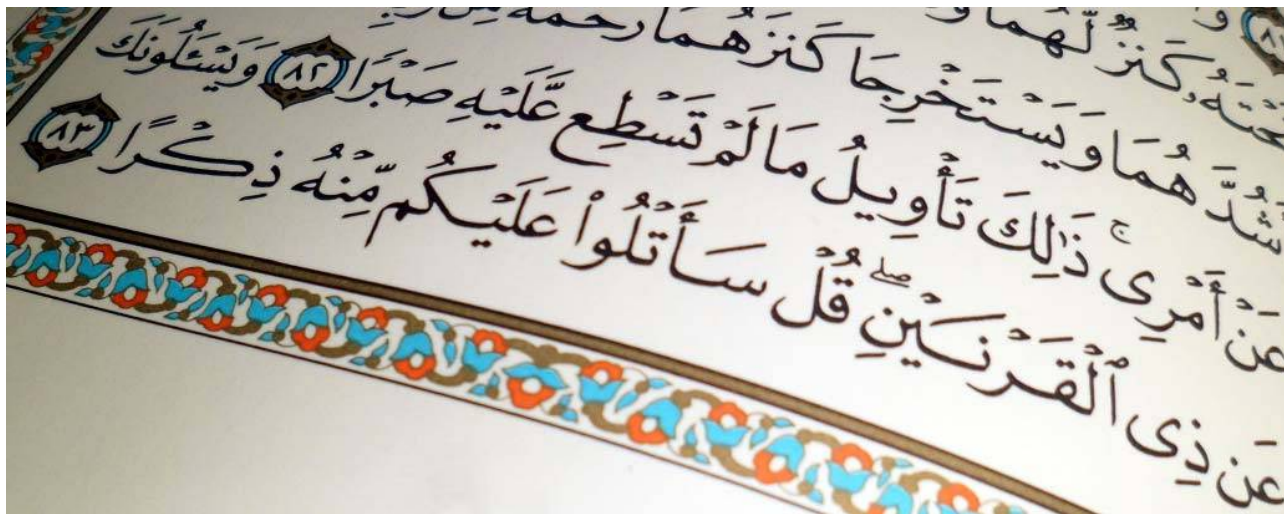 كَنزٌ لَّهُمَا
شُدَّهُمَا وَيَسْتَخْرِجَا كَنزَهُمَا رَحْمَةً مِّن
عَنْ أَمْرِى ۚ ذَٰلِكَ تَأْوِيلُ مَا لَمْ تَسْطِع عَّلَيْهِ صَبْرًا ٨٢ وَيَسْـَٔلُونَكَ
عَن ذِى ٱلْقَرْنَيْنِ ۖ قُلْ سَأَتْلُوا۟ عَلَيْكُم مِّنْهُ ذِكْرًا ٨٣